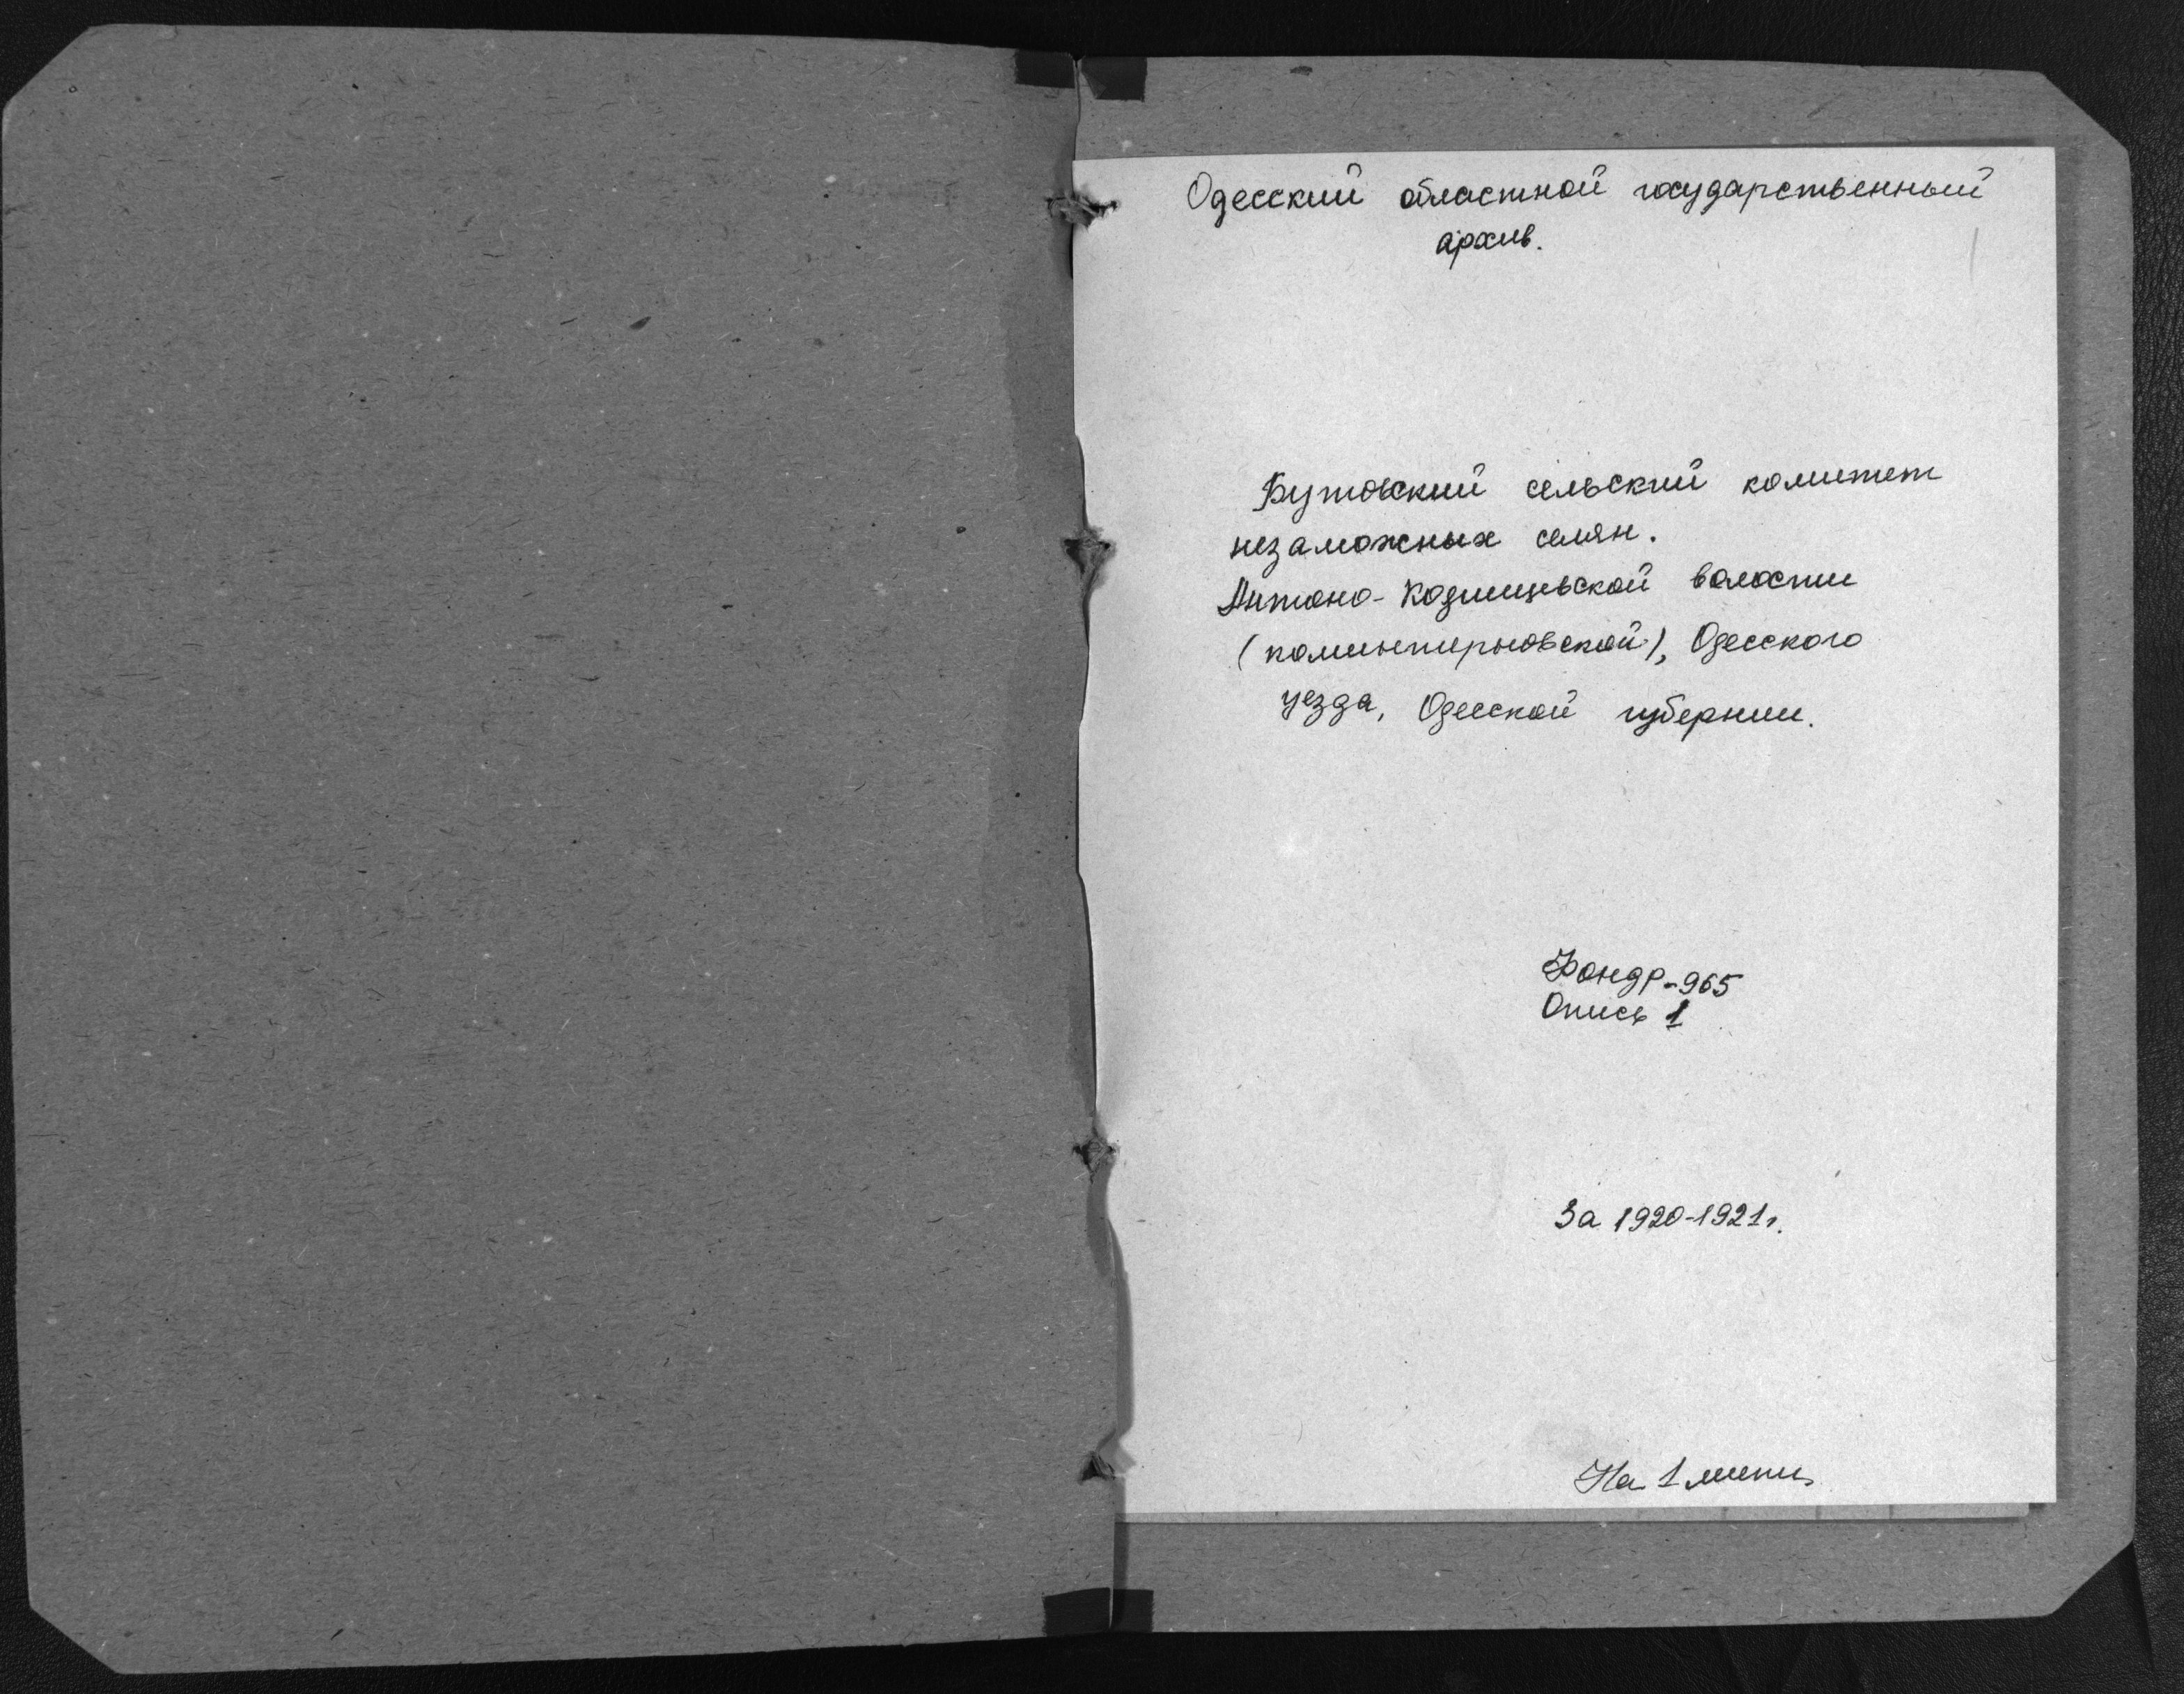 Одесский областной государственный
архив.
Бутовский сельский комитет
незаможных селян.
Антоно-Кодинцевской волости
(коминтерновской), Одесского
уезда, Одесской губернии.
Фонд Р-965
Опись 1
За 1920-1921г.
На 1 листе